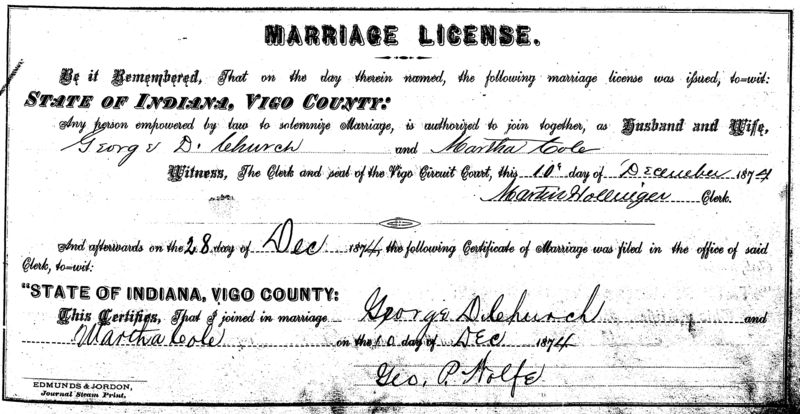 MARRIAGE LICENSE.
Be it Remembered, That on the day therein named, the following marriage license was issued, to=wit:
STATE OF INDIANA, VIGO COUNTY:
Any person empowered by law to solemnize Marriage, is authorized to join together, as Husband and Wife,
George D. Church and Martha Cole
Witness, The Clerk and seal of the Vigo Circuit Court, this 10" day of December 1874
Martin Hollinger Clerk.
And afterwards on the 28 day of Dec 1874, the following Certificate of Marriage was filed in the office of said
Clerk, to=wit:
"STATE OF INDIANA, VIGO COUNTY:
This Certifies, That I joined in marriage George D. Church and
Martha Cole on the 10 day of Dec 1874
Geo. P. Wolfe
EDMUNDS & JORDON,
Journal Steam Print.